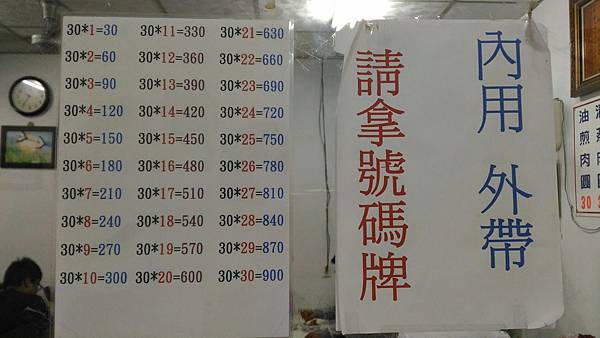 30*1=30
30*2=60
30*3=90
30*4=120
30*5=150
30*6=180
30*7=210
30*8=240
30*9=270
30*10=300
30*11=330
30*12=360
30*13=390
30*14=420
30*15=450
30*16=480
30*17=510
30*18=540
30*19=570
30*20=600
30*21=630
30*22=660
30*23=690
30*24=720
30*25=750
30*26=780
30*27=810
30*28=840
30*29=870
30*30=900
內用 外帶
請拿號碼牌
油煎肉圓30